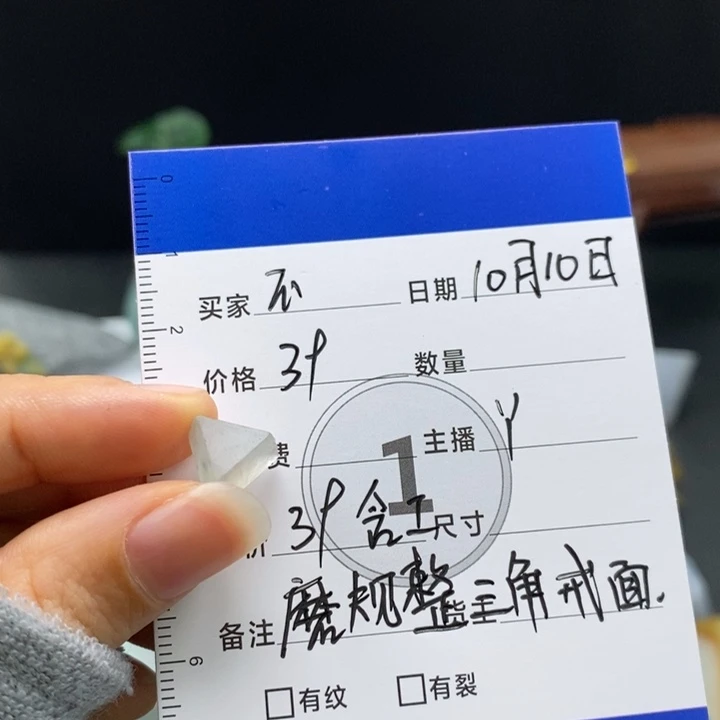 0
1
买家 日期 10月10日
2
价格 39 数量
1
费 主播 Y
价 39 含工 尺寸
备注 磨规整三角戒面. 货主
6
有纹 有裂